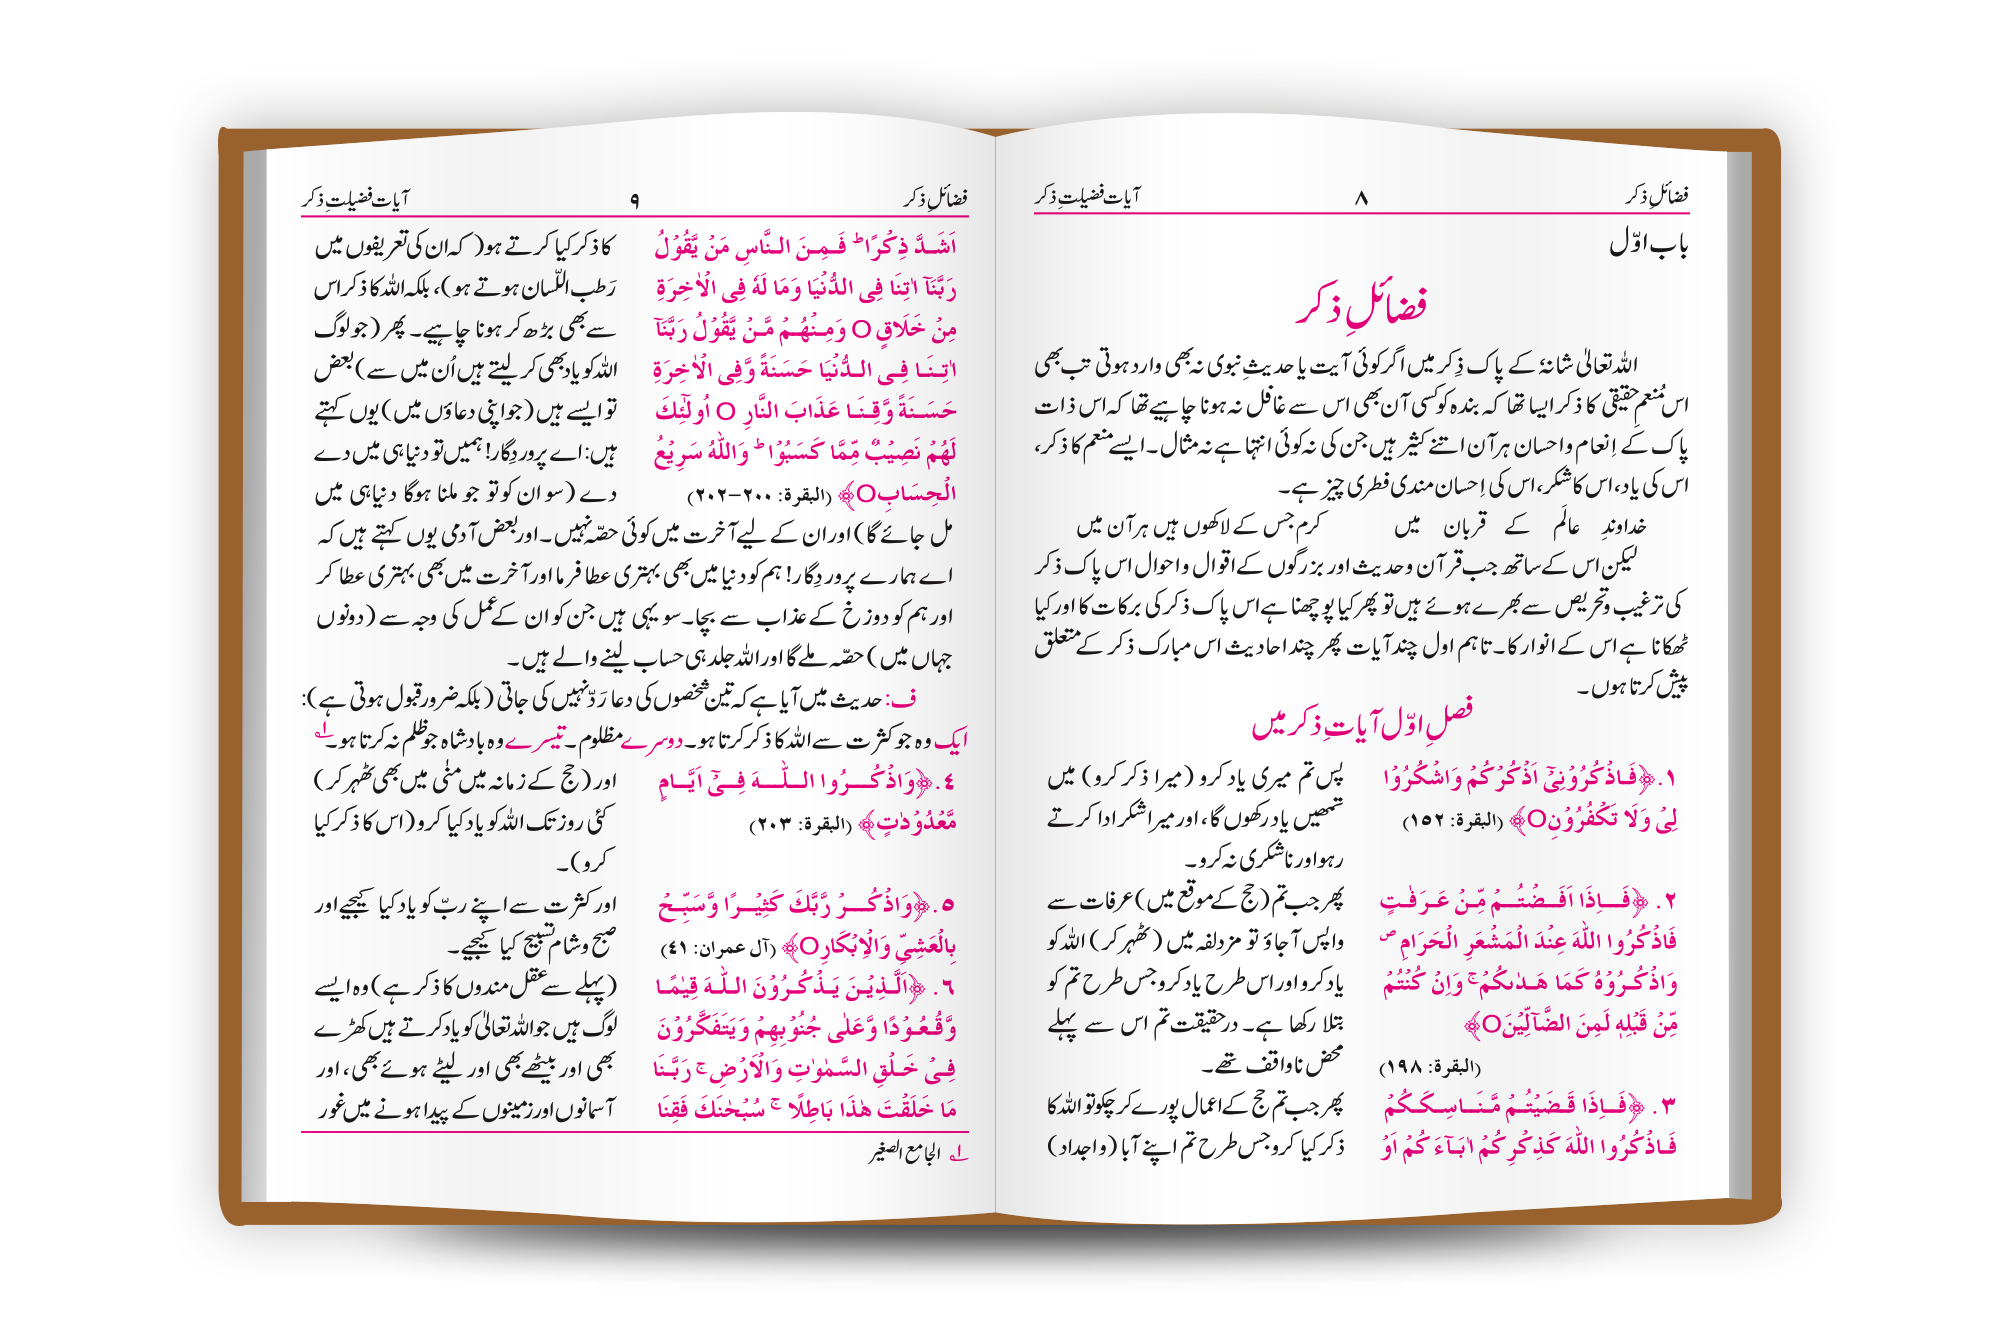 فضائلِ ذکر
۸
آیات فضیلتِ ذکر
باب اوّل
فضائلِ ذکر
اللہ تعالیٰ شانہٗ کے پاک ذِکر میں اگر کوئی آیت یا حدیثِ نبوی نہ بھی وارد ہوتی تب بھی
اس مُنعمِ حقیقی کا ذکر ایسا تھا کہ بندہ کو کسی آن بھی اس سے غافل نہ ہونا چاہیے تھا کہ اس ذات
پاک کے اِنعام و احسان ہر آن اتنے کثیر ہیں جن کی نہ کوئی انتہا ہے نہ مثال۔ ایسے منعم کا ذکر،
اس کی یاد، اس کا شکر، اس کی اِحسان مندی فطری چیز ہے۔
خداوندِ عالَم کے قربان میں کرم جس کے لاکھوں ہیں ہر آن میں
لیکن اس کے ساتھ جب قرآن و حدیث اور بزرگوں کے اقوال و احوال اس پاک ذکر
کی ترغیب و تحریص سے بھرے ہوئے ہیں تو پھر کیا پوچھنا ہے اس پاک ذکر کی برکات کا اور کیا
ٹھکانا ہے اس کے انوار کا۔ تاہم اول چند آیات پھر چند احادیث اس مبارک ذکر کے متعلق
پیش کرتا ہوں۔
فصلِ اوّل آیاتِ ذکر میں
۱. ﴿فَاذْكُرُوْنِىْٓ اَذْكُرْكُمْ وَاشْكُرُوْا
لِىْ وَلَا تَكْفُرُوْنِO﴾ (البقرة: ۱٥۲)
پس تم میری یاد کرو (میرا ذکر کرو) میں
تمھیں یاد رکھوں گا، اور میرا شکر ادا کرتے
رہو اور ناشکری نہ کرو۔
۲. ﴿فَاِذَا اَفَضْتُمْ مِّنْ عَرَفٰتٍ
فَاذْكُرُوا اللّٰهَ عِنْدَ الْمَشْعَرِ الْحَرَامِ ص
وَاذْكُرُوْهُ كَمَا هَدٰىكُمْ ۚ وَاِنْ كُنْتُمْ
مِّنْ قَبْلِهٖ لَمِنَ الضَّآلِّيْنَO﴾
(البقرة: ۱۹۸)
پھر جب تم (حج کے موقع میں) عرفات سے
واپس آجاؤ تو مزدلفہ میں (ٹھہر کر) اللہ کو
یاد کرو اور اس طرح یاد کرو جس طرح تم کو
بتلا رکھا ہے۔ درحقیقت تم اس سے پہلے
محض ناواقف تھے۔
۳. ﴿فَاِذَا قَضَيْتُمْ مَّنَاسِكَكُمْ
فَاذْكُرُوا اللّٰهَ كَذِكْرِكُمْ اٰبَآءَكُمْ اَوْ
پھر جب تم حج کے اعمال پورے کر چکو تو اللہ کا
ذکر کیا کرو جس طرح تم اپنے آبا (و اجداد)
فضائلِ ذکر
۹
آیات فضیلتِ ذکر
اَشَدَّ ذِكْرًا ؕ فَمِنَ النَّاسِ مَنْ يَّقُوْلُ
رَبَّنَآ اٰتِنَا فِى الدُّنْيَا وَمَا لَهٗ فِى الْاٰخِرَةِ
مِنْ خَلَاقٍ O وَمِنْهُمْ مَّنْ يَّقُوْلُ رَبَّنَآ
اٰتِنَا فِى الدُّنْيَا حَسَنَةً وَّفِى الْاٰخِرَةِ
حَسَنَةً وَّقِنَا عَذَابَ النَّارِ O اُولٰٓئِكَ
لَهُمْ نَصِيْبٌ مِّمَّا كَسَبُوْا ؕ وَاللّٰهُ سَرِيْعُ
الْحِسَابِO﴾ (البقرة: ۲۰۰–۲۰۲)
کا ذکر کیا کرتے ہو( کہ ان کی تعریفوں میں
رَطب اللّسان ہوتے ہو)، بلکہ اللہ کا ذکر اس
سے بھی بڑھ کر ہونا چاہیے۔ پھر (جو لوگ
اللہ کو یاد بھی کر لیتے ہیں اُن میں سے) بعض
تو ایسے ہیں (جو اپنی دعاؤں میں) یوں کہتے
ہیں: اے پروردِگار! ہمیں تو دنیا ہی میں دے
دے (سو ان کو تو جو ملنا ہوگا دنیا ہی میں
مل جائے گا) اور ان کے لیے آخرت میں کوئی حصّہ نہیں۔ اور بعض آدمی یوں کہتے ہیں کہ
اے ہمارے پروردِگار! ہم کو دنیا میں بھی بہتری عطا فرما اور آخرت میں بھی بہتری عطا کر
اور ہم کو دوزخ کے عذاب سے بچا۔ سو یہی ہیں جن کو ان کے عمل کی وجہ سے (دونوں
جہاں میں) حصّہ ملے گا اور اللہ جلد ہی حساب لینے والے ہیں۔
ف: حدیث میں آیا ہے کہ تین شخصوں کی دعا رَدّ نہیں کی جاتی (بلکہ ضرور قبول ہوتی ہے):
ایک وہ جو کثرت سے اللہ کا ذکر کرتا ہو۔ دوسرے مظلوم۔ تیسرے وہ بادشاہ جو ظلم نہ کرتا ہو۔ ۱؎
٤. ﴿وَاذْكُرُوا اللّٰهَ فِىْٓ اَيَّامٍ
مَّعْدُوْدٰتٍ﴾ (البقرة: ۲۰۳)
اور (حج کے زمانہ میں منٰی میں بھی ٹھہر کر)
کئی روز تک اللہ کو یاد کیا کرو (اس کا ذکر کیا
کرو)۔
٥. ﴿وَاذْكُرْ رَّبَّكَ كَثِيْرًا وَّسَبِّحْ
بِالْعَشِىِّ وَالْاِبْكَارِO﴾ (آل عمران: ٤۱)
اور کثرت سے اپنے ربّ کو یاد کیا کیجیے اور
صبح و شام تسبیح کیا کیجیے۔
٦. ﴿اَلَّذِيْنَ يَذْكُرُوْنَ اللّٰهَ قِيٰمًا
وَّقُعُوْدًا وَّعَلٰى جُنُوْبِهِمْ وَيَتَفَكَّرُوْنَ
فِىْ خَلْقِ السَّمٰوٰتِ وَالْاَرْضِ ۚ رَبَّنَا
مَا خَلَقْتَ هٰذَا بَاطِلًا ۚ سُبْحٰنَكَ فَقِنَا
(پہلے سے عقل مندوں کا ذکر ہے) وہ ایسے
لوگ ہیں جو اللہ تعالیٰ کو یاد کرتے ہیں کھڑے
بھی اور بیٹھے بھی اور لیٹے ہوئے بھی، اور
آسمانوں اور زمینوں کے پیدا ہونے میں غور
۱؎ الجامع الصغیر